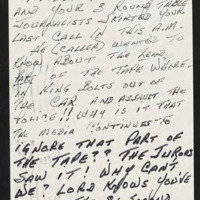 AND YOUR 3 ROUND TABLE
JOURNALISTS SKIRTED YOUR
LAST CALL IN THIS A.M.
HE (CALLER) WANTED TO
KNOW ABOUT THE
PART OF THE TAPE WHERE-
IN KING BOLTS OUT OF
THE CAR AND ASSAULT THE
POLICE!! WHY IS IT THAT
THE MEDIA CONTINUES TO
IGNORE THAT PART OF
THE TAPE?? THE JURORS
SAW IT! WHY CAN'T
WE? LORD KNOWS YOU'VE
THE 81 SECOND